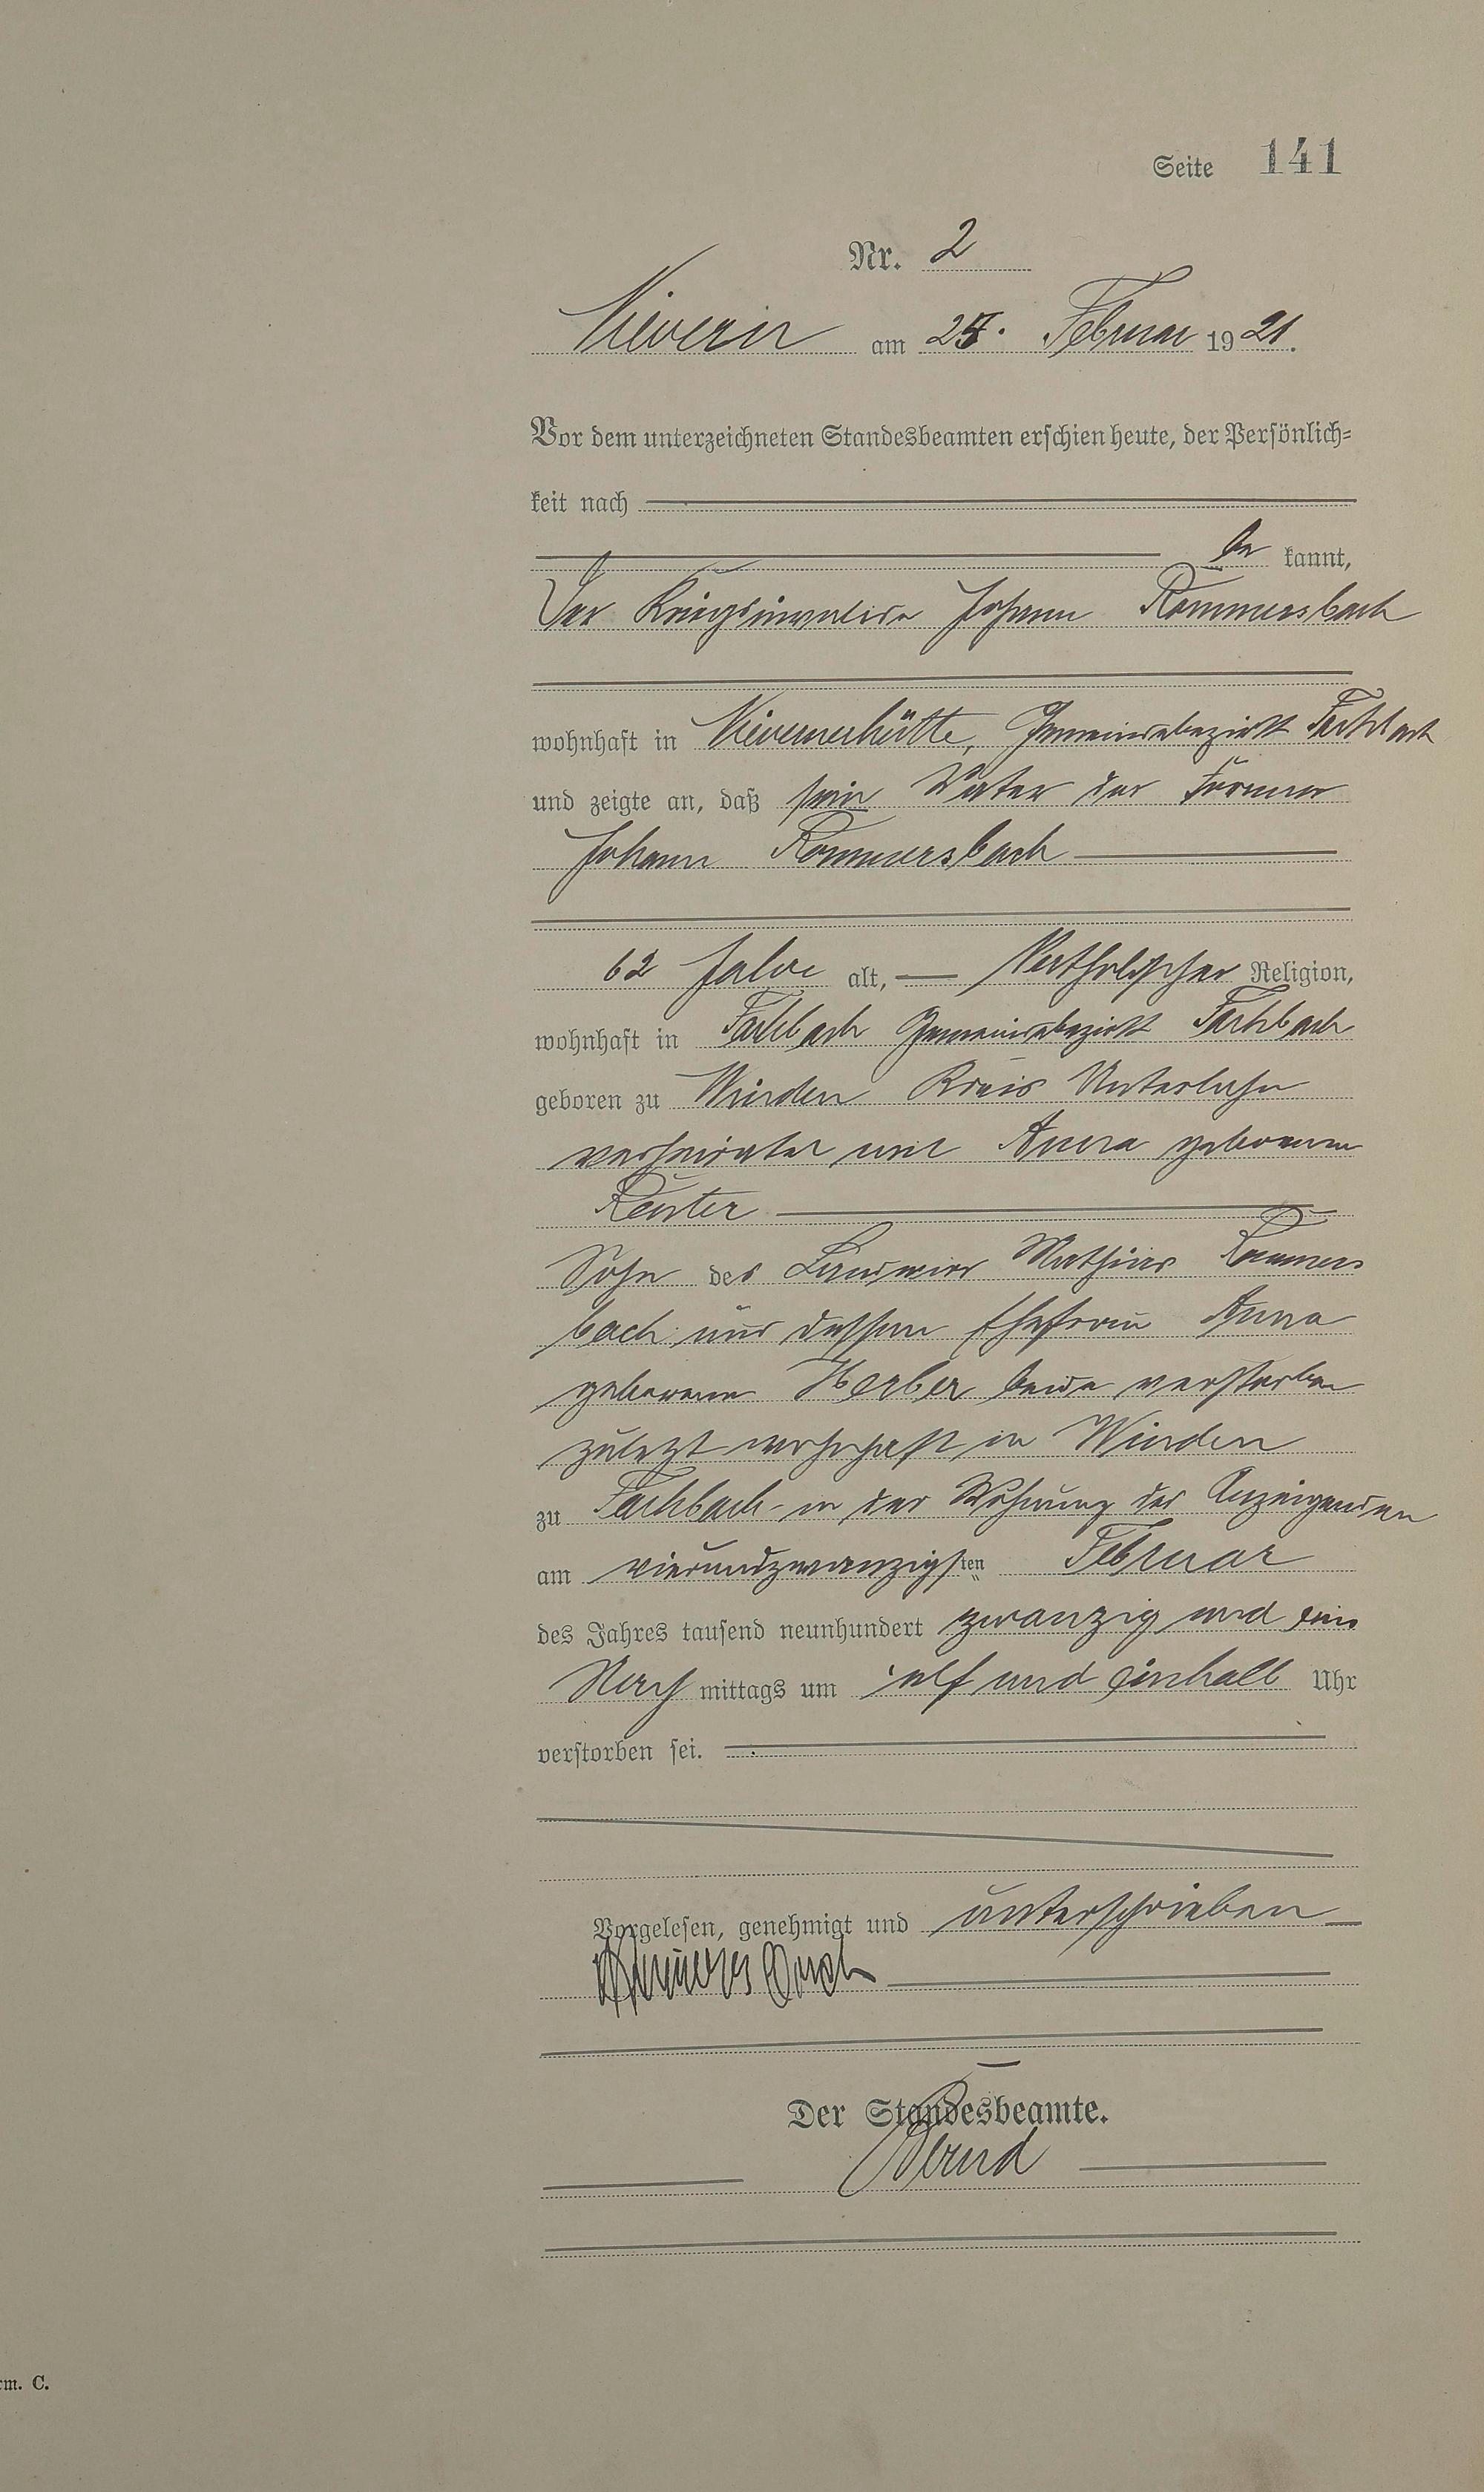 Seite 141
Nr. 2
Nievern am 25. Februar 1921.
Vor dem unterzeichneten Standesbeamten erschien heute, der Persönlich-
keit nach
be kannt,
Der Kriegsinvalide Johann Rommersbach
wohnhaft in Nievernerhütte, Gemeindebezirk Fachbach
und zeigte an, daß sein Vater der Former
Johann Rommersbach
62 Jahre alt, Katholischer Religion,
wohnhaft in Fachbach Gemeindebezirk Fachbach
geboren zu Winden Kreis Unterlahn
verheiratet mit Anna geborenen
Reuter
Sohn des Landwirt Mathias Rommers
bach und dessen Ehefrau Anna
geborene Herber beide verstorben
zuletzt wohnhaft in Winden
zu Fachbach in der Wohnung des Anzeigenden
am vierundzwanzigsten Februar
des Jahres tausend neunhundert zwanzig und eins
Nach mittags um elf und einhalb Uhr
verstorben sei.
Vorgelesen, genehmigt und unterschrieben
Rommersbach
Der Standesbeamte.
rm. C.